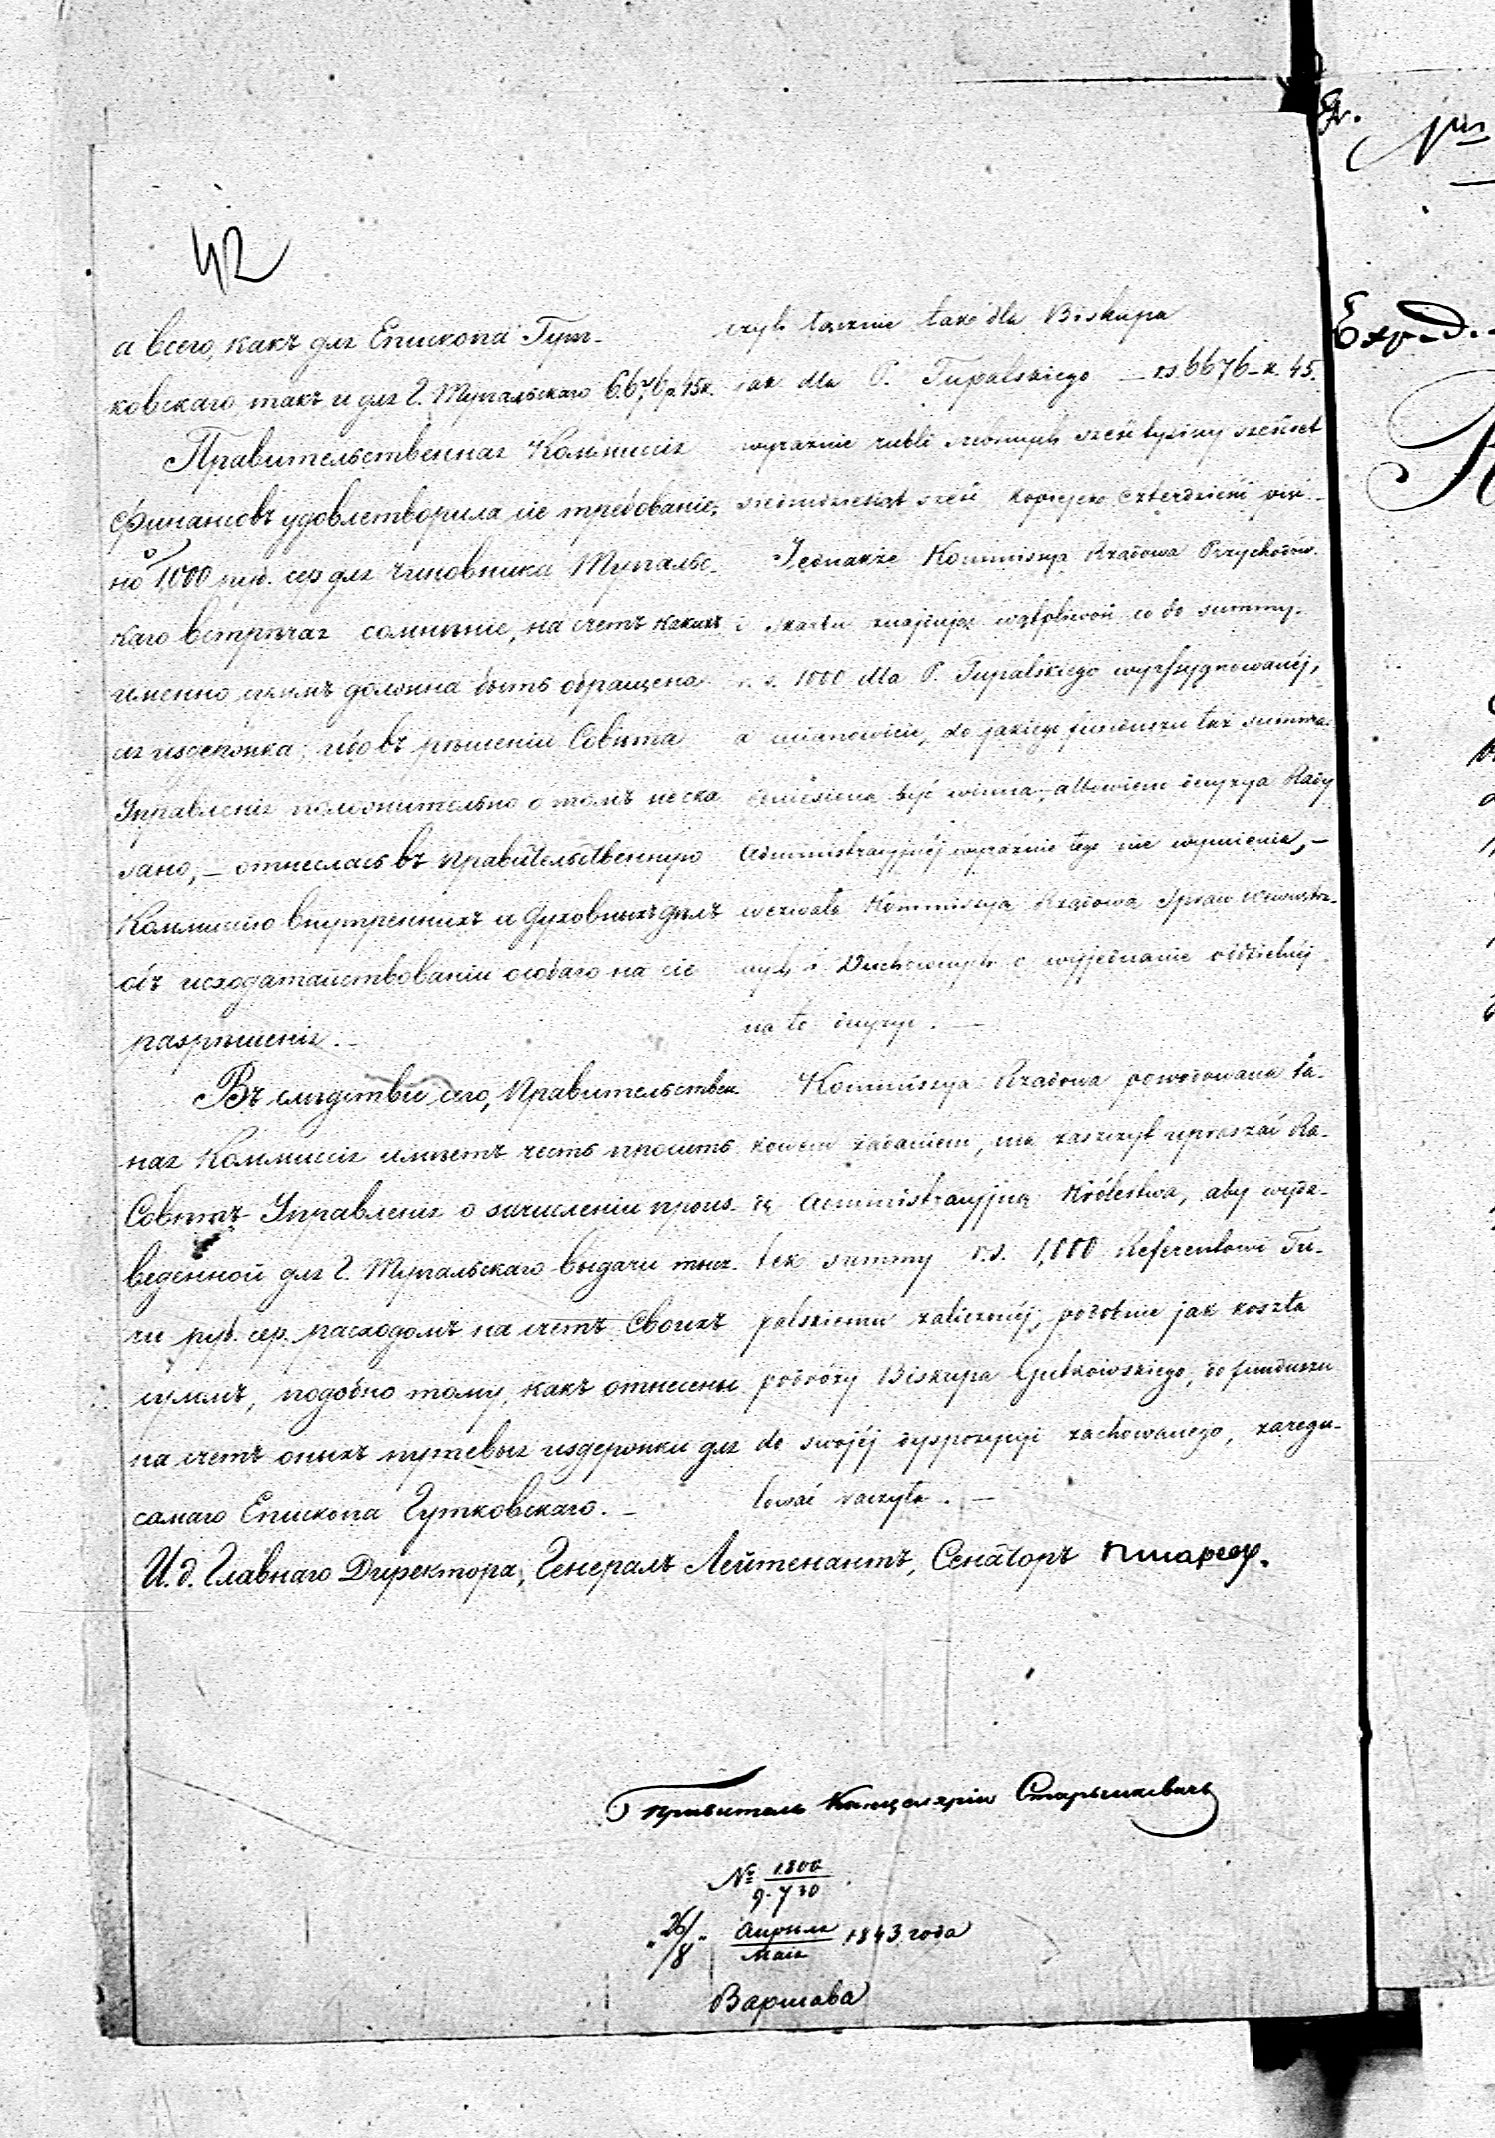 42
а всего, какъ для Епископа Гут-
ковскаго такъ и для Г. Тупальскаго 6.676 р. 45 к.
Правительственная Коммисія
Финансовъ удовлетворила сіе требованіе,
но 1,000 руб. сер. для чиновника Тупальс-
каго встрѣчая сомнѣніе, на счетъ какихъ
именно суммъ должна быть обращена
сія издержка, ибо въ рѣшеніи Совѣта
Управленія положительно о томъ не ска
зано, – отнеслась въ Правительственную
Коммисію Внутреннихъ и Духовныхъ дѣлъ
объ исходатайствованіи особаго на сіе
разрѣшенія. –
Въ слѣдствіе сего, Правительствен-
ная Коммисія имѣетъ честь просить
Совѣтъ Управленія о зачисленіи произ-
веденной для Г. Тупальскаго выдачи тыся-
чи руб. сер. расходомъ на счетъ своихъ
суммъ, подобно тому, какъ отнесены
на счетъ оныхъ путевыя издержки для
самаго Епископа Гутковскаго. –
czyli łącznie tak dla Biskupa
jak dla P. Tupalskiego – rs 6676 – k. 45.
wyraźnie rubli srebrnych sześć tysięcy sześćset
siedmdziesiąt sześć kopiejek czterdzieści pięć. –
Jednakże Kommissya Rządowa Przychodów
i Skarbu znajdując wątpliwość co do summy
r. s. 1000 dla P. Tupalskiego wyassygnowanéj,
a mianowicie, do jakiego funduszu taż summa
odniesiona być winna, albowiem decyzya Rady
Administracyjnéj wyraźnie tego nie wymienia, –
wezwała Kommissyą Rządową Spraw Wewnętrz-
nych i Duchownych o wyjednanie oddzielnéj
na to decyzyi. –
Kommissya Rządowa powodowana ta-
kowém żądaniem, ma zaszczyt upraszać Ra-
dę Administracyjną Królestwa, aby wyda-
tek summy r.s. 1,000 Referentowi Tu-
palskiemu zaliczonéj, podobnie jak koszta
podróży Biskupa Gutkowskiego, do funduszu
do swojéj dyspozycyi zachowanego, zaregu-
lować raczyła. –
И. д. Главнаго Директора, Генералъ Лейтенантъ, Сенаторъ Писарев.
Правитель Канцеляріи Старынкевичъ
№ 1800
9.730
"26/8" Апрѣля
Мая 1843 года
Варшава
Expd.